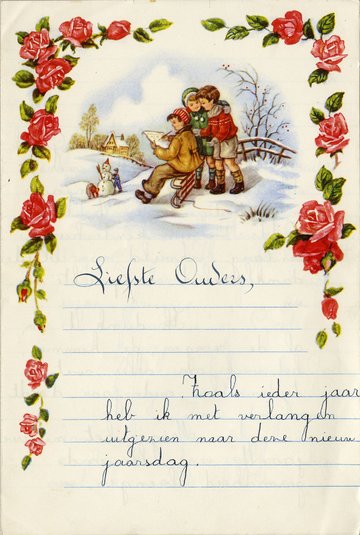 Liefste Ouders,
Zoals ieder jaar
heb ik met verlangen
uitgezien naar deze nieuw
jaarsdag.